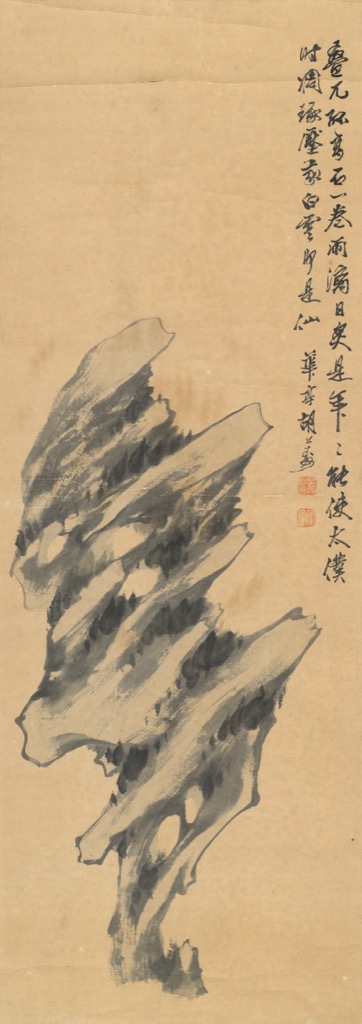 疊兀孤高石一卷雨滴日炙是年〻能使太僕
時凋琢壓家白雲即是仙 華亭胡公壽